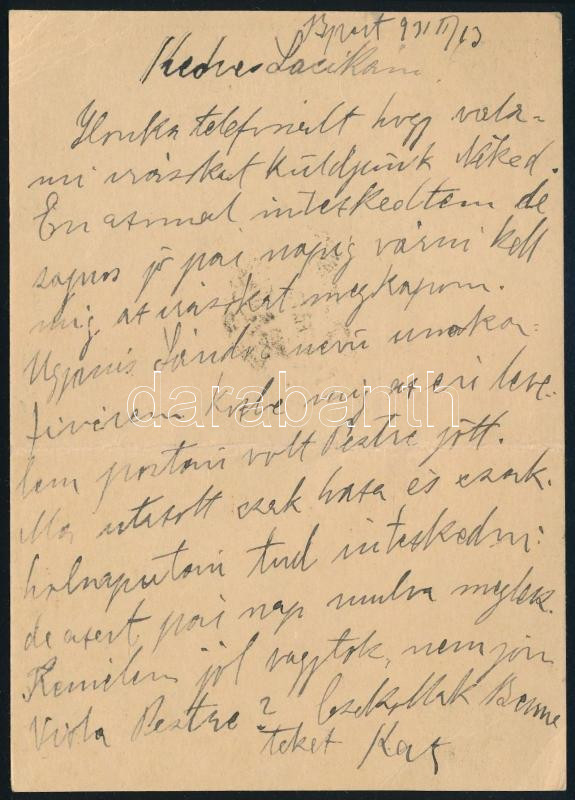 Bpest 931 II/13
Kedves Lacikám
Ilonka telefonált hogy vala-
mi irásokat küldjünk Néked.
Én azonnal inteskedtem de
sajnos jó pár napig várni kell
mig az irásokat megkapom.
Ugyanis Sándor nevü unoka-
fivérem közbe mig az én leve-
lem postán volt Pestre jött.
Ma utazott csak haza és csak
holnaputan tud inteskedni
de azert pár nap mulva meglesz.
Remélem jól vagytok, nem jön
Viola Pestre? Csokollak Benne
teket
darabanth